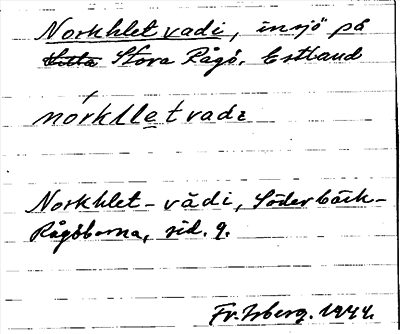 Norkhlet vadi, insjö på
Lilla Stora Rågö. Estland
nórkllet vadi
Norkhlet-vädi, Söderbäck-
Rågöborna, sid. 9.
Fr. Isberg. 1944.